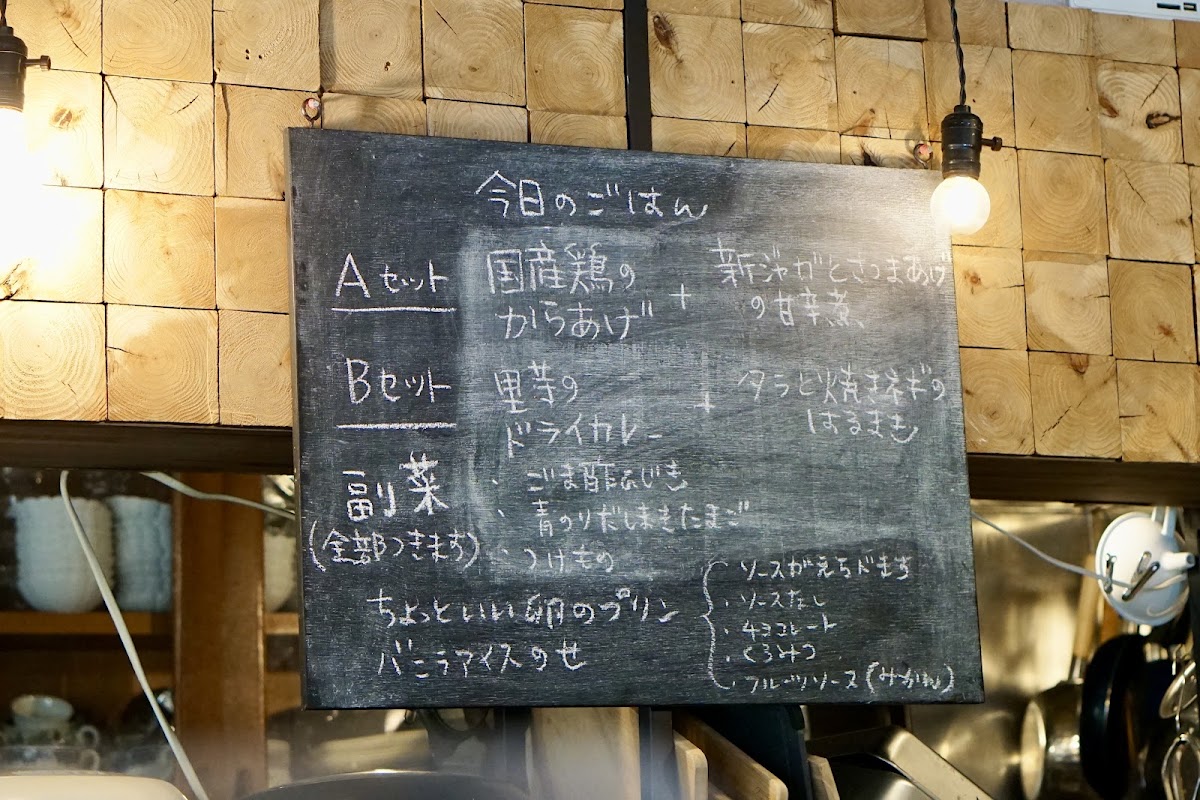 今日のごはん
Aセット
国産鶏の
からあげ
+
新ジャガとさつまあげ
の甘辛煮
Bセット
里芋の
ドライカレー
+
タラと焼きネギの
はるまき
副菜
(全部つきます)
・ごま酢ひじき
・青のりだしまきたまご
・つけもの
ちょっといい卵のプリン
バニラアイスのせ
・ソースがえらべます
・ソースなし
・チョコレート
・くろみつ
・フルーツソース(みかん)